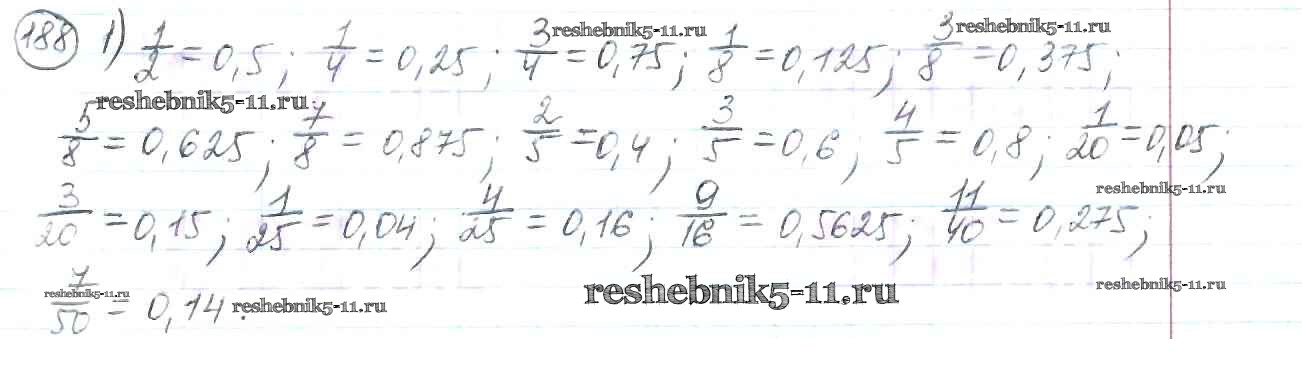 188 1) 1/2 = 0,5; 1/4 = 0,25; 3/4 = 0,75; 1/8 = 0,125; 3/8 = 0,375;
reshebnik5-11.ru reshebnik5-11.ru
5/8 = 0,625; 7/8 = 0,875; 2/5 = 0,4; 3/5 = 0,6; 4/5 = 0,8; 1/20 = 0,05;
reshebnik5-11.ru
3/20 = 0,15; 1/25 = 0,04; 4/25 = 0,16; 9/16 = 0,5625; 11/40 = 0,275;
reshebnik5-11.ru
7/50 = 0,14.
reshebnik5-11.ru reshebnik5-11.ru reshebnik5-11.ru reshebnik5-11.ru